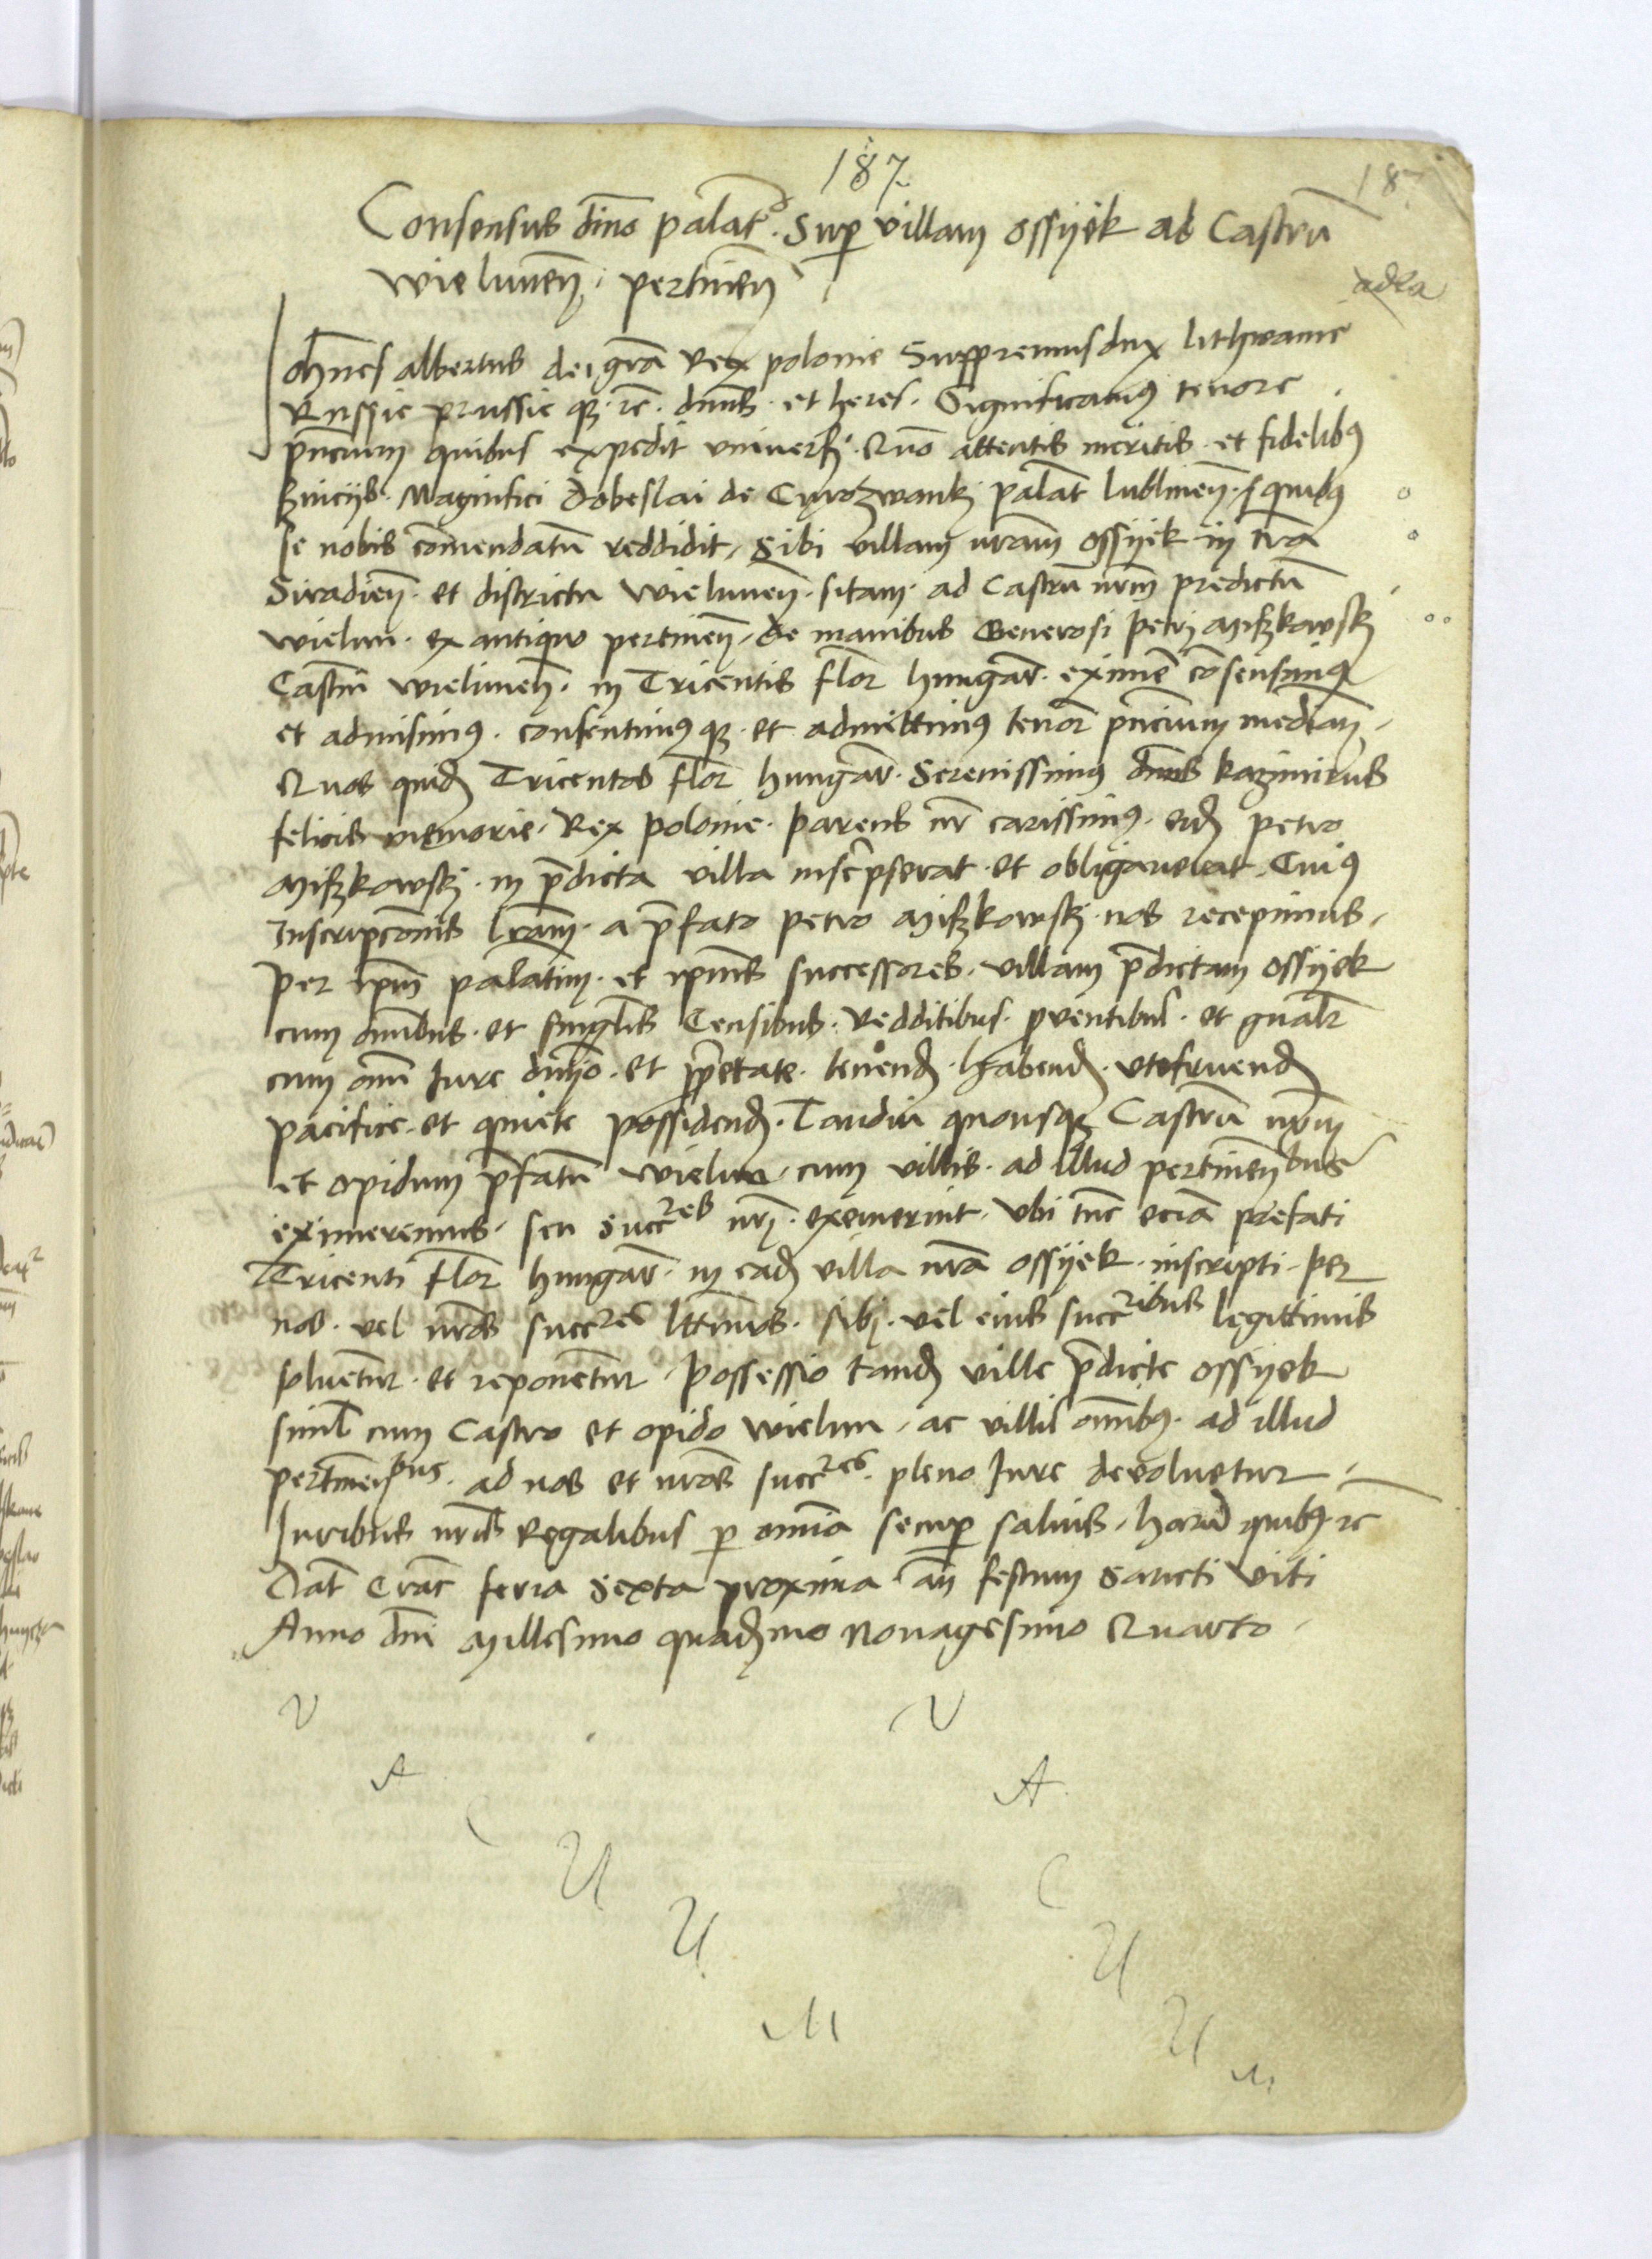 187
187
Consensus dn̄o palat. Sup villam ossyek ad Castrū
wielunen̄. pertinen̄
adla
Ioh̄nes albertus dei gr̄a Rex polonie Suppremusdux lithwanie
Russie prussie q; rc̄. dn̄us. et heres. Significamus tenore
pn̄cium quibus expedit univers. Quō attentis meritis. et fidelibus
s̄viciis. Magnifici dobeslai de Curozwank palat̄ lublinen̄. quibus
se nobis com̄endatū reddidit, Sibi villam nr̄am ossyek in tr̄a
Siradien̄. et districtu wielunen̄. sitam. ad Castrū nr̄m predictū
wielun. ex antiquo pertinen̄, de manibus Generosi petri Miszkowsk
Castn̄i wielunen̄. in Tricentis flor̄ hungar̄. eximer̄ cōsensimus
et admisimus. consentimusq; et admittimus tenor̄ pn̄cium median̄.
Quos quid̄ Tricentos flor̄ hungar̄. Serenissimus dn̄us kazimirus
felicis memorie. Rex polonie. parens nr̄ carissimus. eid̄ petro
Miszkowsk. in p̄dicta villa inscrpserat. et obligaverat. Cuius
Inscripcōnis lr̄am. a p̄fato petro Miszkowsk. nos recepimus.
per ip̄m palatin̄. et ip̄ius successores. villam p̄dictam ossyek
cum om̄ibus. et singl̄is Censibus. Redditibus. pventibus. et gnalr̄
cum om̄i Iure dn̄io. et pp̄etate. tenend̄. habend̄. utefruend̄
pacifice. et quiete possidend̄. Tandiu quousq; Castrū nr̄m
et opidum p̄fatū wielun. cum villis. ad illud pertinen̄bus
eximeremus. seu succres nr̄i. exemerint. Ubi tūc eciā prefati
Tricenti flor̄ hungar̄. in ead̄ villa nr̄a ossyek. inscripti. per
nos. vel nr̄os succres lt̄timos. sibi. vel eius succribus legittimis
solvent̄ur. et reponent̄ur. possessio tand̄ ville p̄dicte ossyek
siml̄ cum Castro et opido wielun. ac villis om̄ibus. ad illud
pertinen̄bus. ad nos et nr̄os succres. pleno Iure devolvetur.
Iuribus nr̄is Regalibus p om̄ia semp salvis. harū quibus rc̄
Dat̄ Crac̄ feria Sexta proxima an̄ festum Sancti viti
Anno dn̄i Millesimo quad̄mo Nonagesimo Quarto.
V V
A A
C U C
U U
M U
M